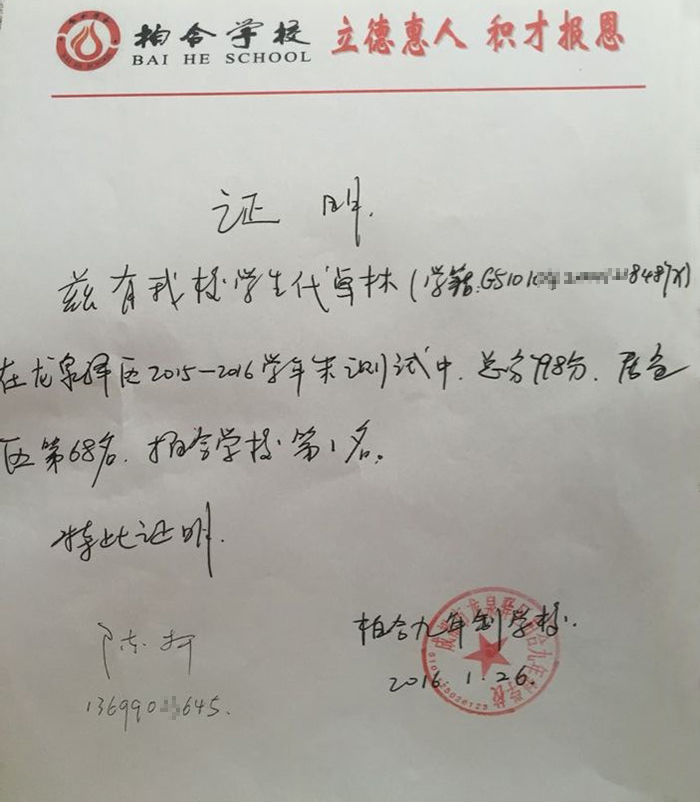 柏合学校
BAI HE SCHOOL
立德惠人 积才报恩
证 明.
兹有我校学生代卓林(学籍:G5101 8487X)
在龙泉驿区2015—2016学年末测试中.总分798分.居全
区第68名.柏合学校第1名。
特此证明.
柏合九年制学校.
2016.1.26.
136990 645.